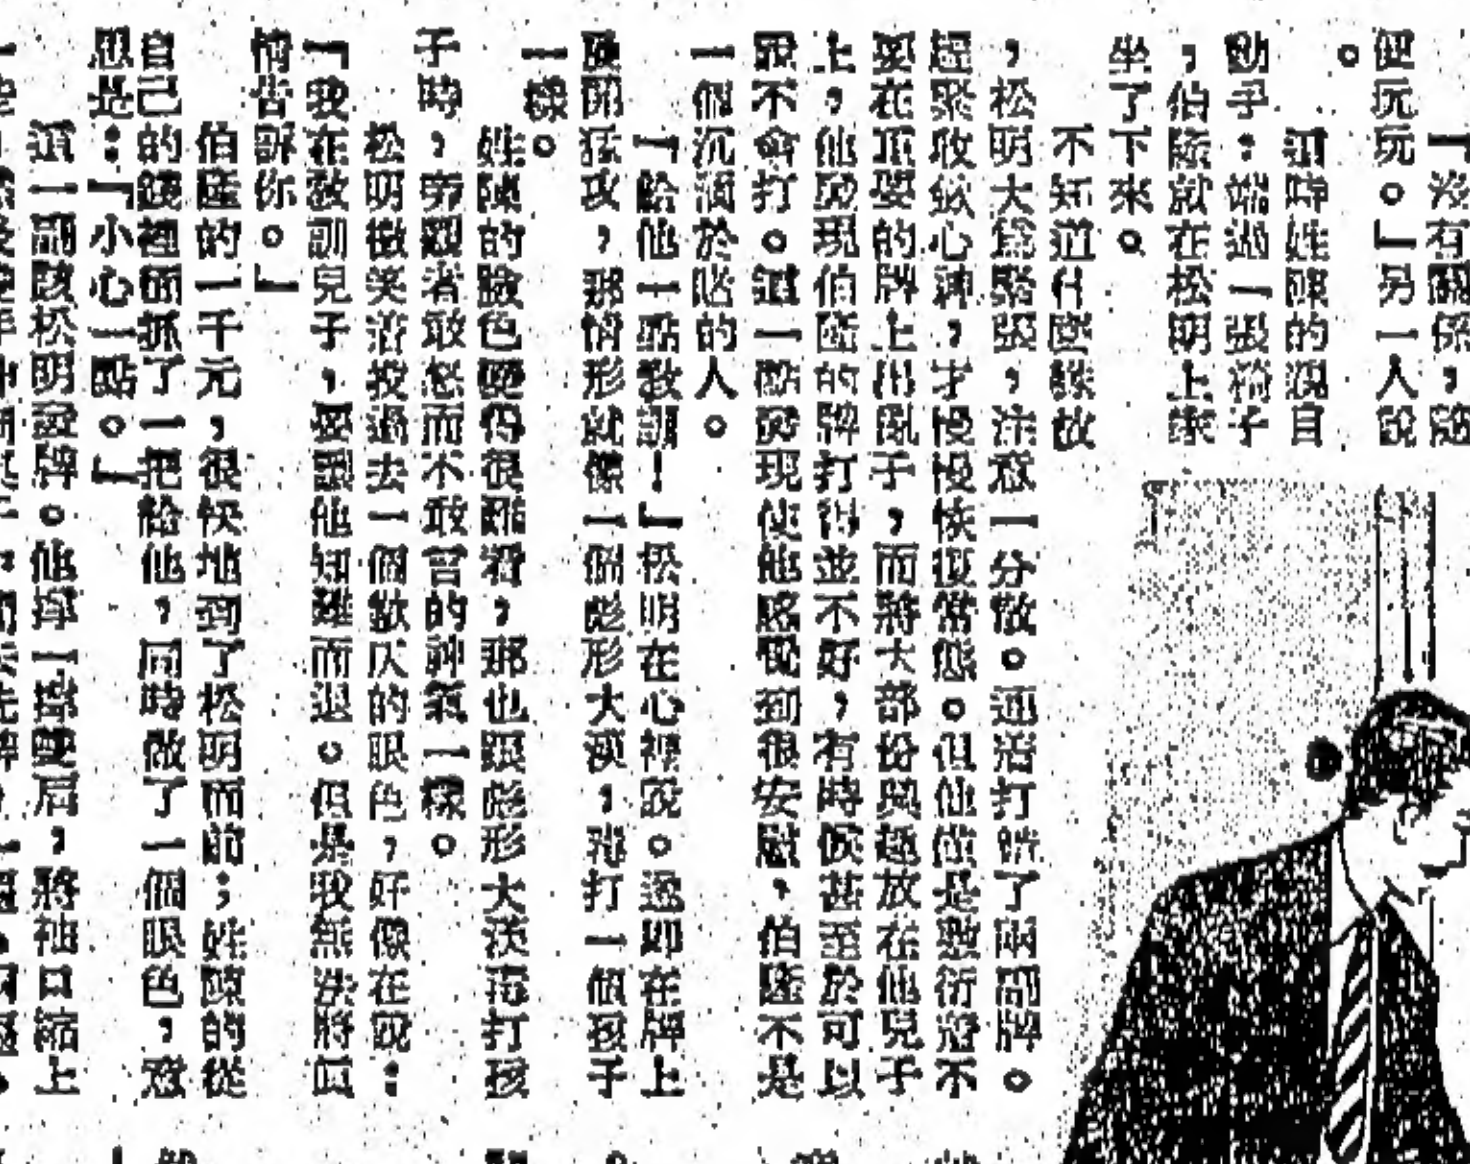 「沒有關係，隨
便玩玩。」另一人說
。
這時姓陳的親自
動手：端過一張椅子
，伯隆就在松明上家
坐了下來。
不知道什麼緣故
，松明大為緊張，注意一分散。連著打錯了兩副牌。
趕緊收斂心神，才慢慢恢復常態。但他僅是敷衍著不
要在頂要的牌上出亂子，而將大部份興趣放在他兒子
上，他發現伯隆的牌打得並不好，有時候甚至於可以
說不會打。這一點發現使他感覺到很安慰，伯隆不是
一個沉湎於賭的人。
「給他一點教訓！」松明在心裡說。過即在牌上
展開猛攻，那情形就像一個彪形大漢，毒打一個孩子
一樣。
姓陳的臉色變得很難看，那也跟彪形大漢毒打孩
子時，旁觀者敢怒而不敢言的神氣一樣。
松明微笑著投過去一個歉仄的眼色，好像在說：
「我在教訓兒子，要讓他知難而退。但是我無法將真
情告訴你。」
伯隆的一千元，很快地到了松明面前；姓陳的從
自己的錢裡面抓了一把給他，同時做了一個眼色，意
思是：「小心一點。」
這一副該松明發牌。他擇一擇雙眉，將袖口縮上